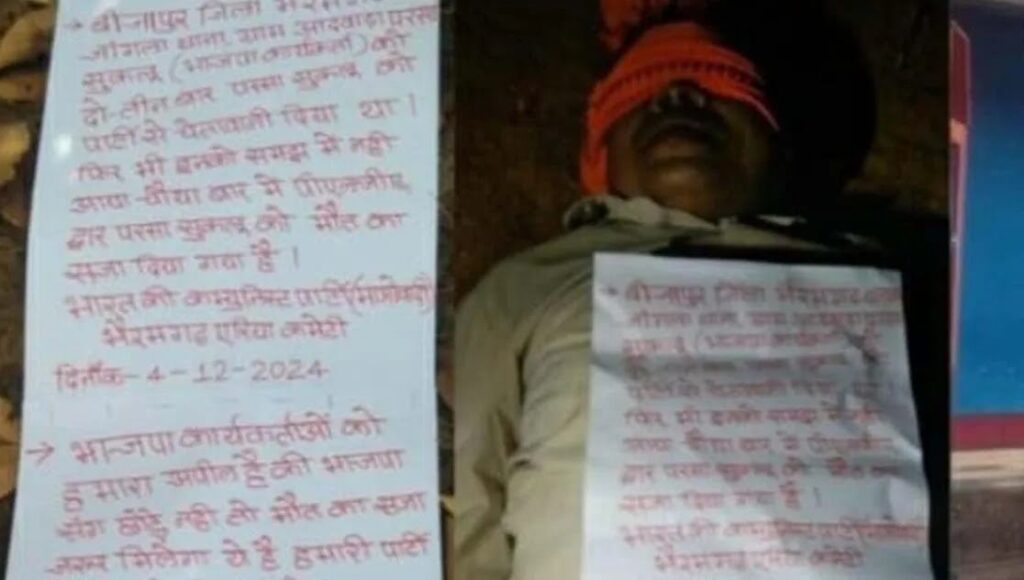 → बीजापुर जिला भैरमगढ़
जांगला थाना, ग्राम आदवाड़ा परसा
सुकलू (भाजपा कार्यकर्ता) को
दो-तीन बार परसा सुकलू को
पार्टी से चेतावानी दिया था ।
फिर भी इनको समझ में नहीं
आया-चौथा बार में पीएलजीए
द्वारा परसा सुकलू को मौत का
सजा दिया गया है ।
भारत की कम्युनिस्ट पार्टी (माओवादी)
भैरमगढ़ एरिया कमेटी
दिनाँक- 4-12-2024
→ भाजपा कार्यकर्ताओं को
हमारा अपील है की भाजपा
संग छोड़े नहीं तो मौत का सजा
जरुर मिलेगा ये है हमारी पार्टी
→ बीजापुर जिला भैरमगढ़
फिर भी इनको समझ में नहीं
आया चौथा बार में पीएलजीए
द्वारा परसा सुकलू को मौत का
सजा दिया गया है ।
भारत की कम्युनिस्ट पार्टी
भैरमगढ़ एरिया कमेटी